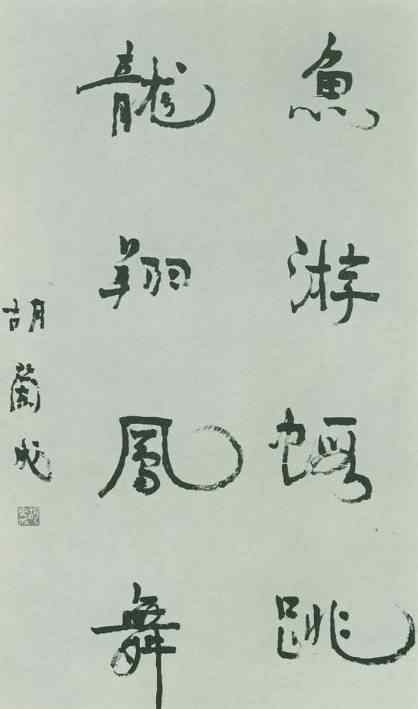 魚游蝦跳
龍翔鳳舞
胡蘭成